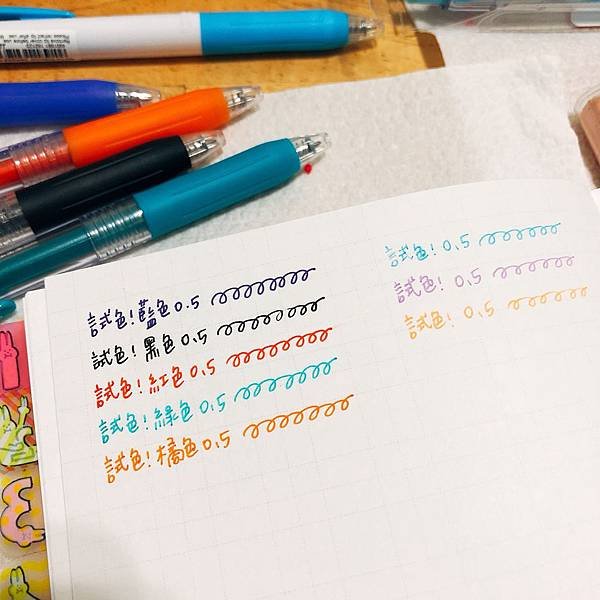 試色!藍色0.5
試色!黑色0.5
試色!紅色0.5
試色!綠色0.5
試色!橘色0.5
試色!0.5
試色!0.5
試色!0.5